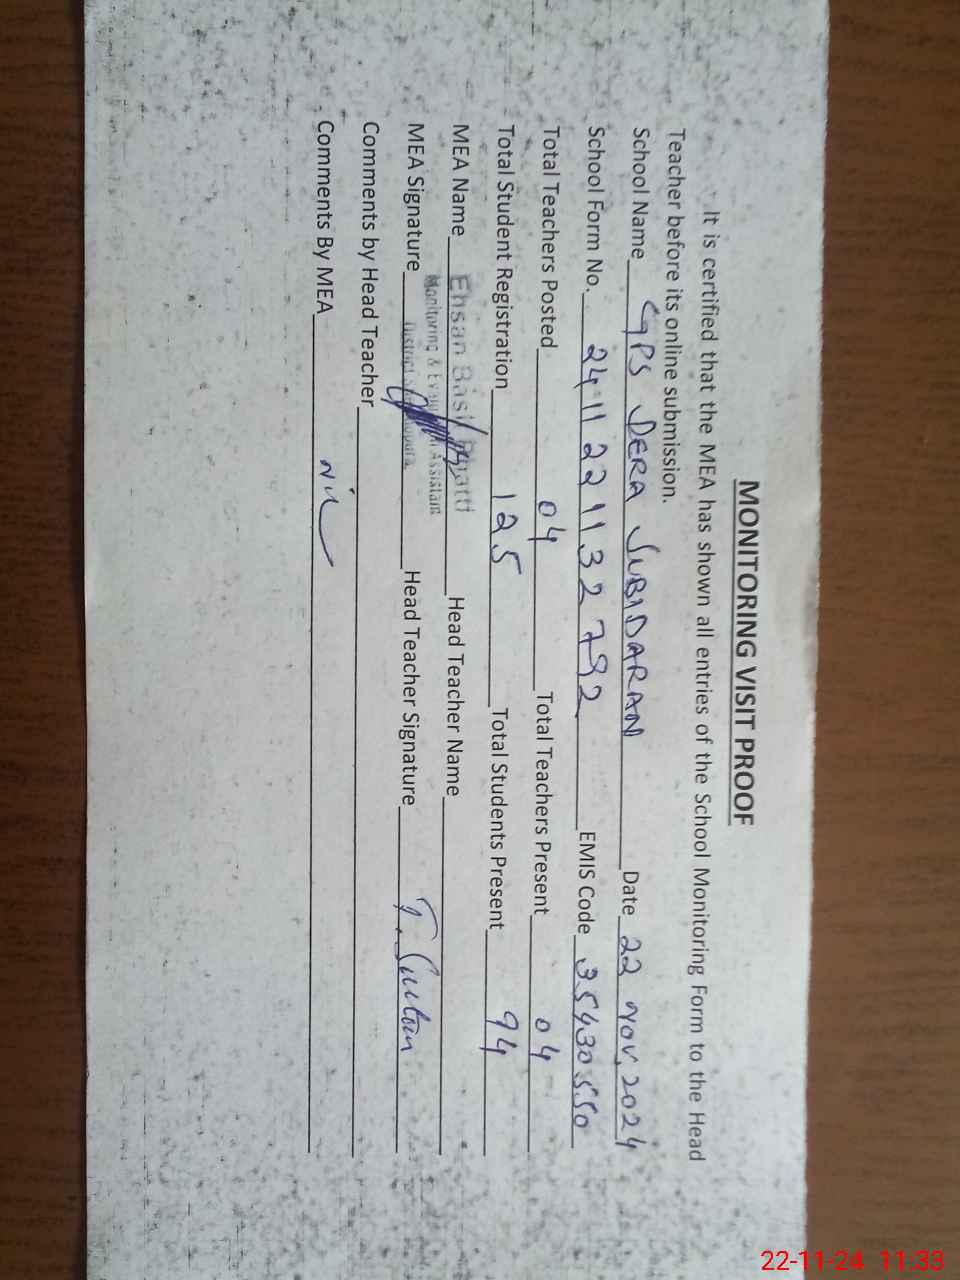 MONITORING VISIT PROOF
It is certified that the MEA has shown all entries of the School Monitoring Form to the Head
Teacher before its online submission.
School Name GPS DERA SUBIDARAN Date 22 Nov, 2024
School Form No. 24 11 22 11 32 792 EMIS Code 35430550
Total Teachers Posted 04 Total Teachers Present 04
Total Student Registration 125 Total Students Present 94
MEA Name Ehsan Bhatti Head Teacher Name
Monitoring & Assistant
MEA Signature District Head Teacher Signature
Comments by Head Teacher
Comments By MEA Nil
22-11-24 11:33